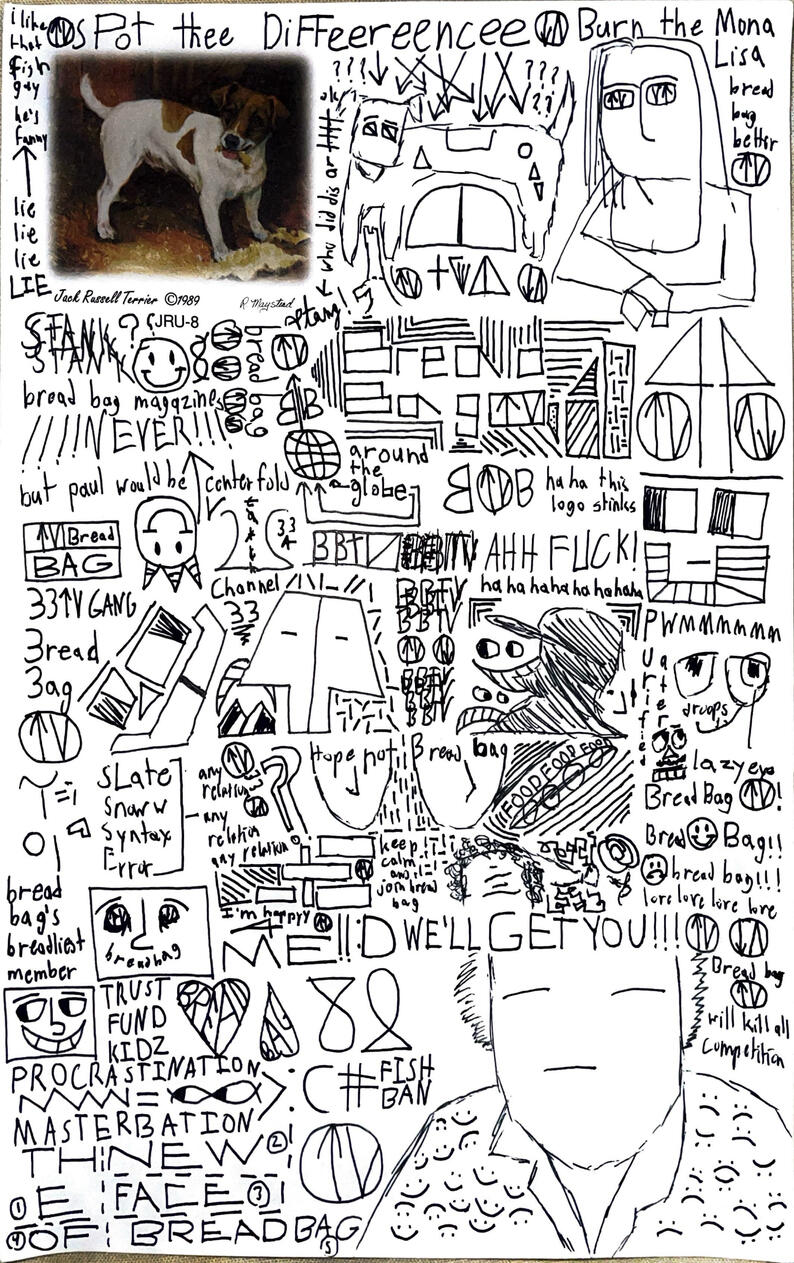 sPot thee DiFFeereencee
Burn the Mona
Lisa
i like
that
fish
guy
he's
fanny
lie
lie
lie
LIE
bread
bag
better
???
???
ok
who did dis ar
Jack Russell Terrier ©1989
R. Maystead
JRU-8
STANK?
STANK
bread bag magazines
NEVER!!!
but paul would be centerfold
bread
bag
BB
around
the
globe
haha this
logo stinks
TV Bread
BAG
33
BBTV
BBTV
AHH FUCK!
ha ha ha ha ha ha ha ha
33TV GANG
Bread
Bag
Channel
33
BBTV
BBTV
BBTV
BBTV
PWmmmmmm
Purified
water
droops
lazy eye
Bread Bag TV!
Bread Bag!!
bread bag!!!
love love love love
Hope not
Bread bag
FOOD FOOD FOOD
sLate
Snow w
Syntax
Error
any
relation
any
relation
any relation?
keep
calm
and
join bread
bag
bread
bag's
breadliest
member
breadbag
I'm happy
ME!!:D WE'LL GET YOU!!!
Bread bag
will kill all
competition
TRUST
FUND
KIDZ
BREAD
BAG
PROCRASTINATION
MASTERBATION
C# FISH
BAN
TH NEW 2
1 E FACE 3
4 OF BREADBAG
5